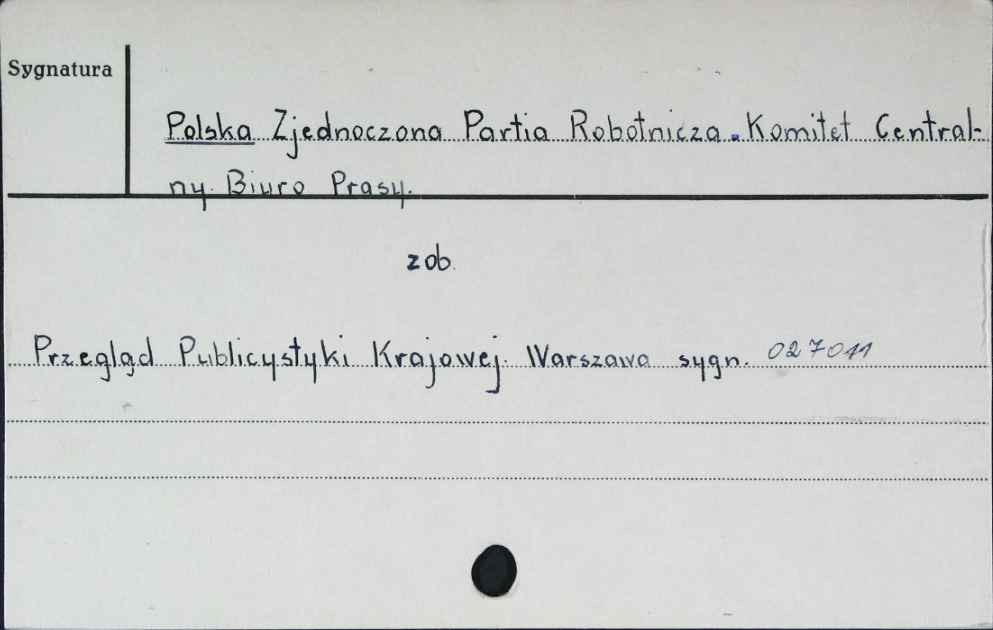 Sygnatura
Polska Zjednoczona Partia Robotnicza. Komitet Central-
ny. Biuro Prasy.
zob.
Przegląd Publicystyki Krajowej. Warszawa sygn. 027011